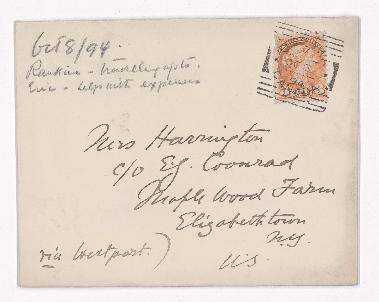 Oct 8/94.
Rankin - travelling apts.
Eric - helps with expenses
Mrs Harrington
c/o E.J. Coonrad
Maple Wood Farm
Elizabethtown
N.Y.
U.S.
via Westport.)